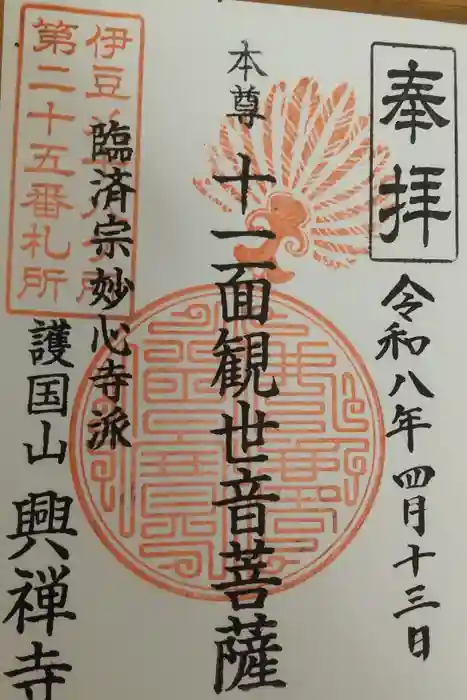 奉拝
令和八年四月十三日
本尊
十一面観世音菩薩
臨済宗妙心寺派
護国山 興禅寺
伊豆
第二十五番札所